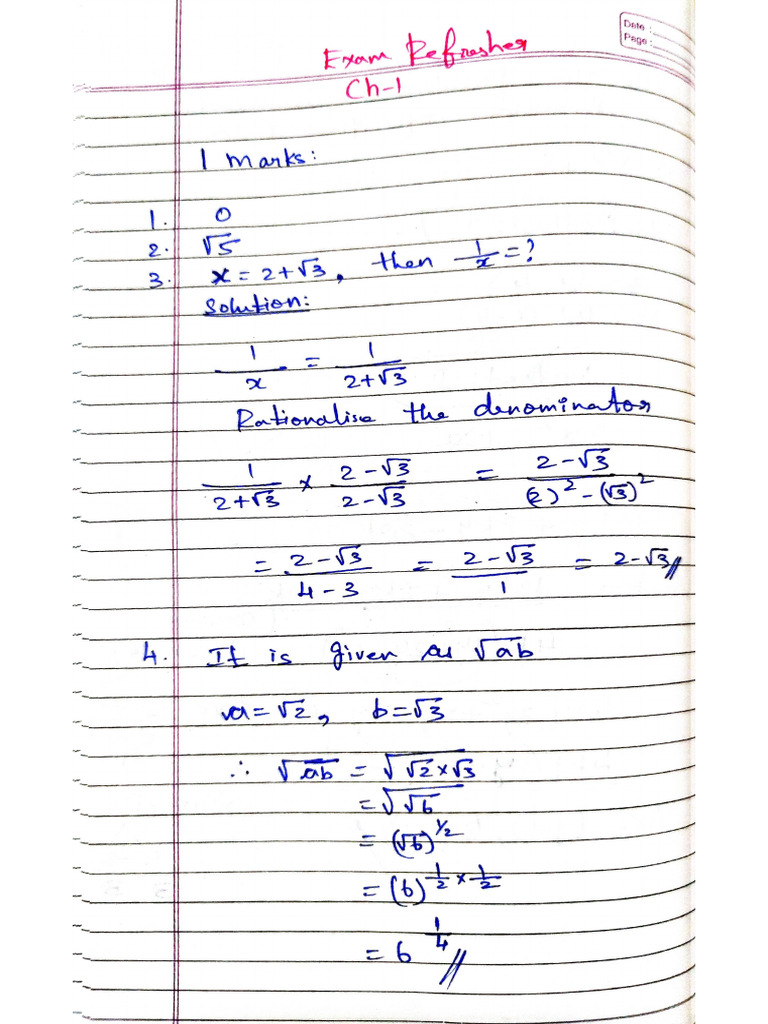 Date :
Page :
Exam Refresher
Ch-1
1 marks:
1. 0
2. √5
3. x = 2+√3, then 1/x = ?
Solution:
1/x = 1/(2+√3)
Rationalise the denominator
1/(2+√3) × (2-√3)/(2-√3) = (2-√3)/((2)² - (√3)²)
= (2-√3)/(4-3) = (2-√3)/1 = 2-√3//
4. It is given as √ab
a=√2, b=√3
∴ √ab = √(√2×√3)
= √√6
= (√6)^1/2
= (6)^(1/2 × 1/2)
= 6^1/4 //